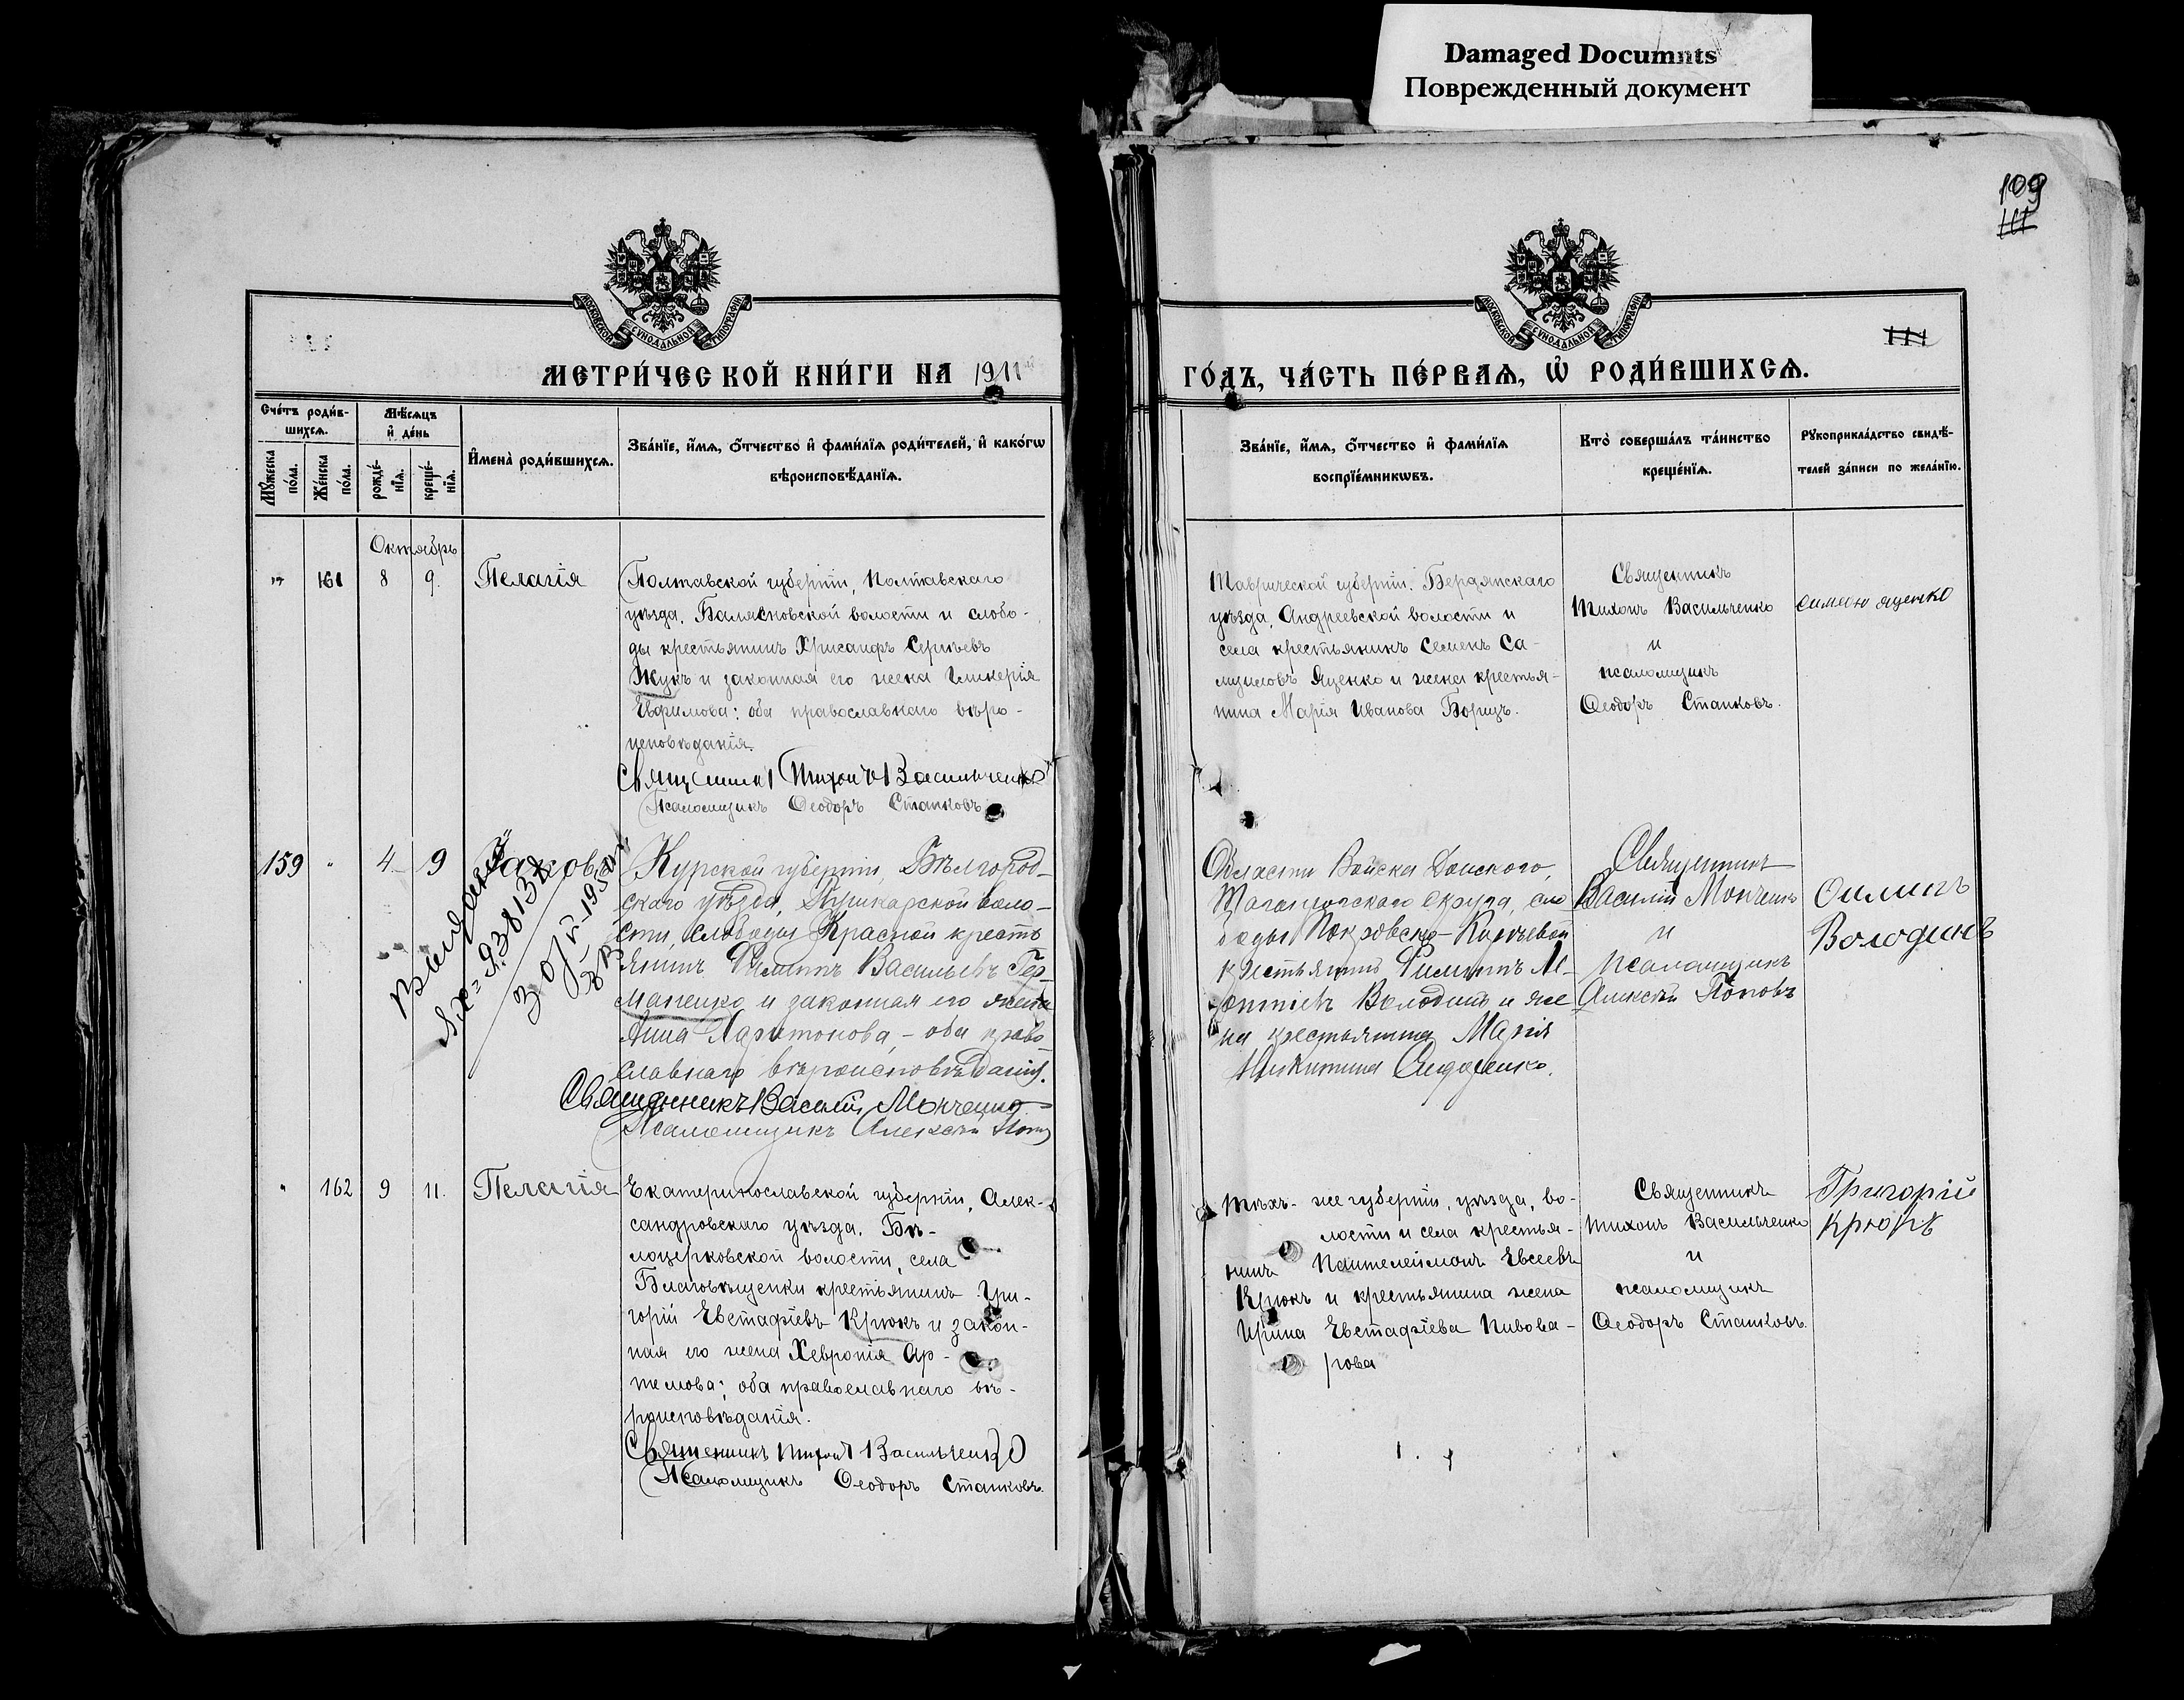 Damaged Documnts
Поврежденный документ
109
111
МОСКОВСКОЙ СѴНОДАЛЬНОЙ ТИПОГРАФІИ
МОСКОВСКОЙ СѴНОДАЛЬНОЙ ТИПОГРАФІИ
111
МЕТРИ́ЧЕСКОЙ КНИ́ГИ НА 1911
ГО́ДЪ, ЧА́СТЬ ПЕ́РВАЯ, Ѡ҆ РОДИ́ВШИХСѦ.
Сче́тъ роди́в-
шихсѧ.
Мꙋ́жеска по́ла.
Же́нска по́ла.
Мѣ́сѧцъ
и҆ де́нь
рожде́-
нїѧ.
креще́-
нїѧ.
И҆мена̀ роди́вшихсѧ.
Зва́нїе, и҆́мѧ, ѻ҆́тчество и҆ фами́лїѧ роди́телей, и҆ како́гѡ
вѣроисповѣ́данїѧ.
Зва́нїе, и҆́мѧ, ѻ҆́тчество и҆ фами́лїѧ
воспрїе́мникѡвъ.
Кто̀ соверша́лъ та́инство
креще́нїѧ.
Рꙋкоприкла́дство свидѣ́-
телей за́писи по жела́нїю.
Октябрь
" 161 8 9. Пелагія
Полтавской губерніи, Полтавскаго
уѣзда, Балясновской волости и слобо-
ды крестьянинъ Хрисанфъ Сергѣевъ
Жукъ и законная его жена Гликерія
Евфимова: оба православнаго вѣро-
исповѣданія.
Священникъ Тихонъ Васильченко
Псаломщикъ Ѳеодоръ Станковъ
Таврической губерніи. Бердянскаго
уѣзда, Андреевской волости и
села крестьянинъ Семенъ Са-
муиловъ Яценко и жена крестья-
нина Марія Иванова Борщъ.
Священникъ
Тихонъ Васильченко
и
псаломщикъ
Ѳеодоръ Станковъ.
Симеонъ яценко
159 " 4 9 Іаковъ
Курской губерніи, Бѣлгород-
скаго уѣзда, Пушкарской воло-
сти, слободы Красной кресть
янинъ Филиппъ Васильевъ Гер-
маненко и законная его жена
Анна Харитонова, - оба право-
славнаго вѣроисповѣданія.
Священникъ Василій Мончецко
Псаломщикъ Алексѣй Поповъ
Области Войска Донскаго,
Таганрогскаго Округа, сло
боды Покровско-Кирѣевой
крестьянинъ Филиппъ
Володинъ и же
на крестьянина Марія
Никитина Сидоренко.
Священникъ
Василій
и
Псаломщикъ
Алексѣй Поповъ
Филипъ
Володинъ
" 162 9 11. Пелагія
Екатеринославской губерніи, Алек-
сандровскаго уѣзда. Бѣ-
лоцерковской волости, села
Благовѣщенки крестьянинъ Гри-
горій Евстафіевъ Крюкъ и закон-
ная его жена Хевронія Ар-
темова; оба православнаго вѣ-
роисповѣданія.
Священникъ Тихонъ Васильченко
Псаломщикъ Ѳеодоръ Станковъ.
Тѣхъ-же губерніи, уѣзда, во-
лости и села крестья-
нинъ Пантелеймонъ Евсеевъ
Крюкъ и крестьянина жена
Ирина Евстафіева Пивова-
рова
Священникъ
Тихонъ Васильченко
и
псаломщикъ
Ѳеодоръ Станковъ.
Григорій
Крюкъ